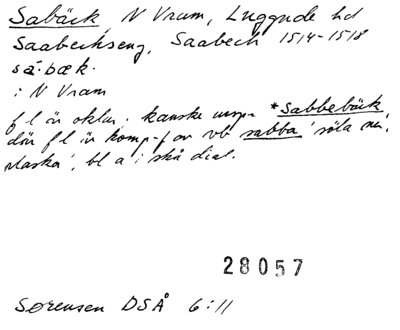 Sabäck N Vram, Luggude hd
Saabechseng, Saabech 1514-1518
sá·bæk.
i N Vram
f l är oklar. kanske urspr *Sabbebäck,
där f l är komp-f av vb sabba 'söla ner,
slaska', bl a i skå dial.
28057
Sørensen DSÅ 6:11